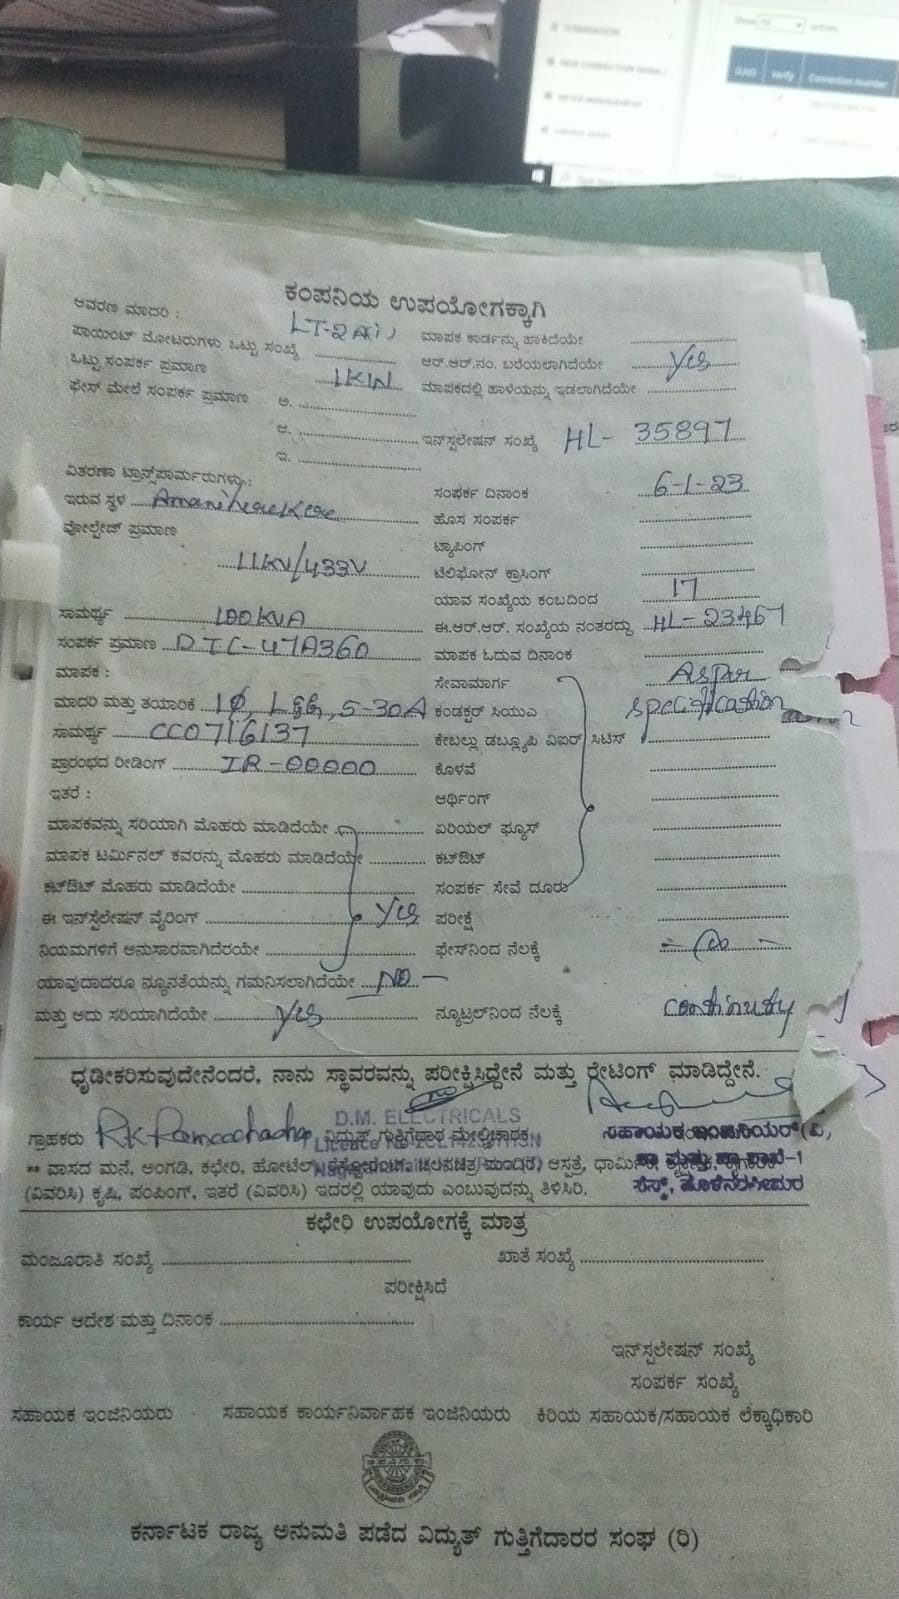 Show 10 entries
TERMINATION
NEW CONNECTION
METER MANAGEMENT
ENERGY AUDIT
SI.NO Verify Connection Number
ಕಂಪನಿಯ ಉಪಯೋಗಕ್ಕಾಗಿ
ಆವರಣ ಮಾದರಿ : LT-2A(i) ಮಾಪಕ ಕಾರ್ಡನ್ನು ಹಾಕಿದೆಯೇ
ಪಾಯಿಂಟ್ ಮೋಟರುಗಳು ಒಟ್ಟು ಸಂಖ್ಯೆ ಆರ್.ಆರ್.ನಂ. ಬರೆಯಲಾಗಿದೆಯೇ Yes
ಒಟ್ಟು ಸಂಪರ್ಕ ಪ್ರಮಾಣ 1KW ಮಾಪಕದಲ್ಲಿ ಹಾಳೆಯನ್ನು ಇಡಲಾಗಿದೆಯೇ
ಫೇಸ್ ಮೇಲೆ ಸಂಪರ್ಕ ಪ್ರಮಾಣ ಅ.
ಆ. ಇನ್‌ಸ್ಟಲೇಷನ್ ಸಂಖ್ಯೆ HL- 35897
ಇ.
ವಿತರಣಾ ಟ್ರಾನ್ಸ್‌ಫಾರ್ಮರುಗಳು.: ಸಂಪರ್ಕ ದಿನಾಂಕ 6-1-23
ಇರುವ ಸ್ಥಳ ಹೊಸ ಸಂಪರ್ಕ
ವೋಲ್ಟೇಜ್ ಪ್ರಮಾಣ ಟ್ಯಾಪಿಂಗ್
11KV/433V ಟೆಲಿಫೋನ್ ಕ್ರಾಸಿಂಗ್
ಯಾವ ಸಂಖ್ಯೆಯ ಕಂಬದಿಂದ 17
ಸಾಮರ್ಥ್ಯ 100KVA ಈ.ಆರ್.ಆರ್. ಸಂಖ್ಯೆಯ ನಂತರದ್ದು HL-23467
ಸಂಪರ್ಕ ಪ್ರಮಾಣ DTC-47A360 ಮಾಪಕ ಓದುವ ದಿನಾಂಕ
ಮಾಪಕ : ಸೇವಾಮಾರ್ಗ As per
ಮಾದರಿ ಮತ್ತು ತಯಾರಿಕೆ 1Ø, L&G, 5-30A ಕಂಡಕ್ಟರ್ ಸಿಯುಎ specification
ಸಾಮರ್ಥ್ಯ CC0716137 ಕೇಬಲ್ಲು ಡಬ್ಲ್ಯೂಪಿ ವಿಐಆರ್ ಸಿಟಿಸ್
ಪ್ರಾರಂಭದ ರೀಡಿಂಗ್ IR-00000 ಕೊಳವೆ
ಇತರೆ : ಆರ್ಥಿಂಗ್
ಮಾಪಕವನ್ನು ಸರಿಯಾಗಿ ಮೊಹರು ಮಾಡಿದೆಯೇ ಏರಿಯಲ್ ಫ್ಯೂಸ್
ಮಾಪಕ ಟರ್ಮಿನಲ್ ಕವರನ್ನು ಮೊಹರು ಮಾಡಿದೆಯೇ ಕಟ್‌ಔಟ್
ಕಟ್‌ಔಟ್ ಮೊಹರು ಮಾಡಿದೆಯೇ ಸಂಪರ್ಕ ಸೇವೆ ದೂರು
ಈ ಇನ್‌ಸ್ಟೆಲೇಷನ್ ವೈರಿಂಗ್ Yes ಪರೀಕ್ಷೆ
ನಿಯಮಗಳಿಗೆ ಅನುಸಾರವಾಗಿದೆರೆಯೇ ಫೇಸ್‌ನಿಂದ ನೆಲಕ್ಕೆ
ಯಾವುದಾದರೂ ನ್ಯೂನತೆಯನ್ನು ಗಮನಿಸಲಾಗಿದೆಯೇ NO
ಮತ್ತು ಅದು ಸರಿಯಾಗಿದೆಯೇ Yes ನ್ಯೂಟ್ರಲ್‌ನಿಂದ ನೆಲಕ್ಕೆ continuity
ಧೃಡೀಕರಿಸುವುದೇನೆಂದರೆ, ನಾನು ಸ್ಥಾವರವನ್ನು ಪರೀಕ್ಷಿಸಿದ್ದೇನೆ ಮತ್ತು ರೇಟಿಂಗ್ ಮಾಡಿದ್ದೇನೆ.
D.M. ELECTRICALS
ಗ್ರಾಹಕರು ವಿದ್ಯುತ್ ಗುತ್ತಿಗೆದಾರ ಮೇಲ್ವಿಚಾರಕ ಸಹಾಯಕ ಇಂಜಿನಿಯರ್(ವಿ)
** ವಾಸದ ಮನೆ, ಅಂಗಡಿ, ಕಛೇರಿ, ಹೋಟೆಲ್, ಚಲನಚಿತ್ರ ಮಂದಿರ) ಆಸ್ಪತ್ರೆ,
(ವಿವರಿಸಿ) ಕೃಷಿ, ಪಂಪಿಂಗ್, ಇತರೆ (ವಿವರಿಸಿ) ಇದರಲ್ಲಿ ಯಾವುದು ಎಂಬುವುದನ್ನು ತಿಳಿಸಿರಿ.
ಕಛೇರಿ ಉಪಯೋಗಕ್ಕೆ ಮಾತ್ರ
ಮಂಜೂರಾತಿ ಸಂಖ್ಯೆ ಖಾತೆ ಸಂಖ್ಯೆ
ಪರೀಕ್ಷಿಸಿದೆ
ಕಾರ್ಯ ಆದೇಶ ಮತ್ತು ದಿನಾಂಕ
ಇನ್‌ಸ್ಪಲೇಷನ್ ಸಂಖ್ಯೆ
ಸಂಪರ್ಕ ಸಂಖ್ಯೆ
ಸಹಾಯಕ ಇಂಜಿನಿಯರು ಸಹಾಯಕ ಕಾರ್ಯನಿರ್ವಾಹಕ ಇಂಜಿನಿಯರು ಕಿರಿಯ ಸಹಾಯಕ/ಸಹಾಯಕ ಲೆಕ್ಕಾಧಿಕಾರಿ
ಕರ್ನಾಟಕ ರಾಜ್ಯ ಅನುಮತಿ ಪಡೆದ ವಿದ್ಯುತ್ ಗುತ್ತಿಗೆದಾರರ ಸಂಘ (ರಿ)